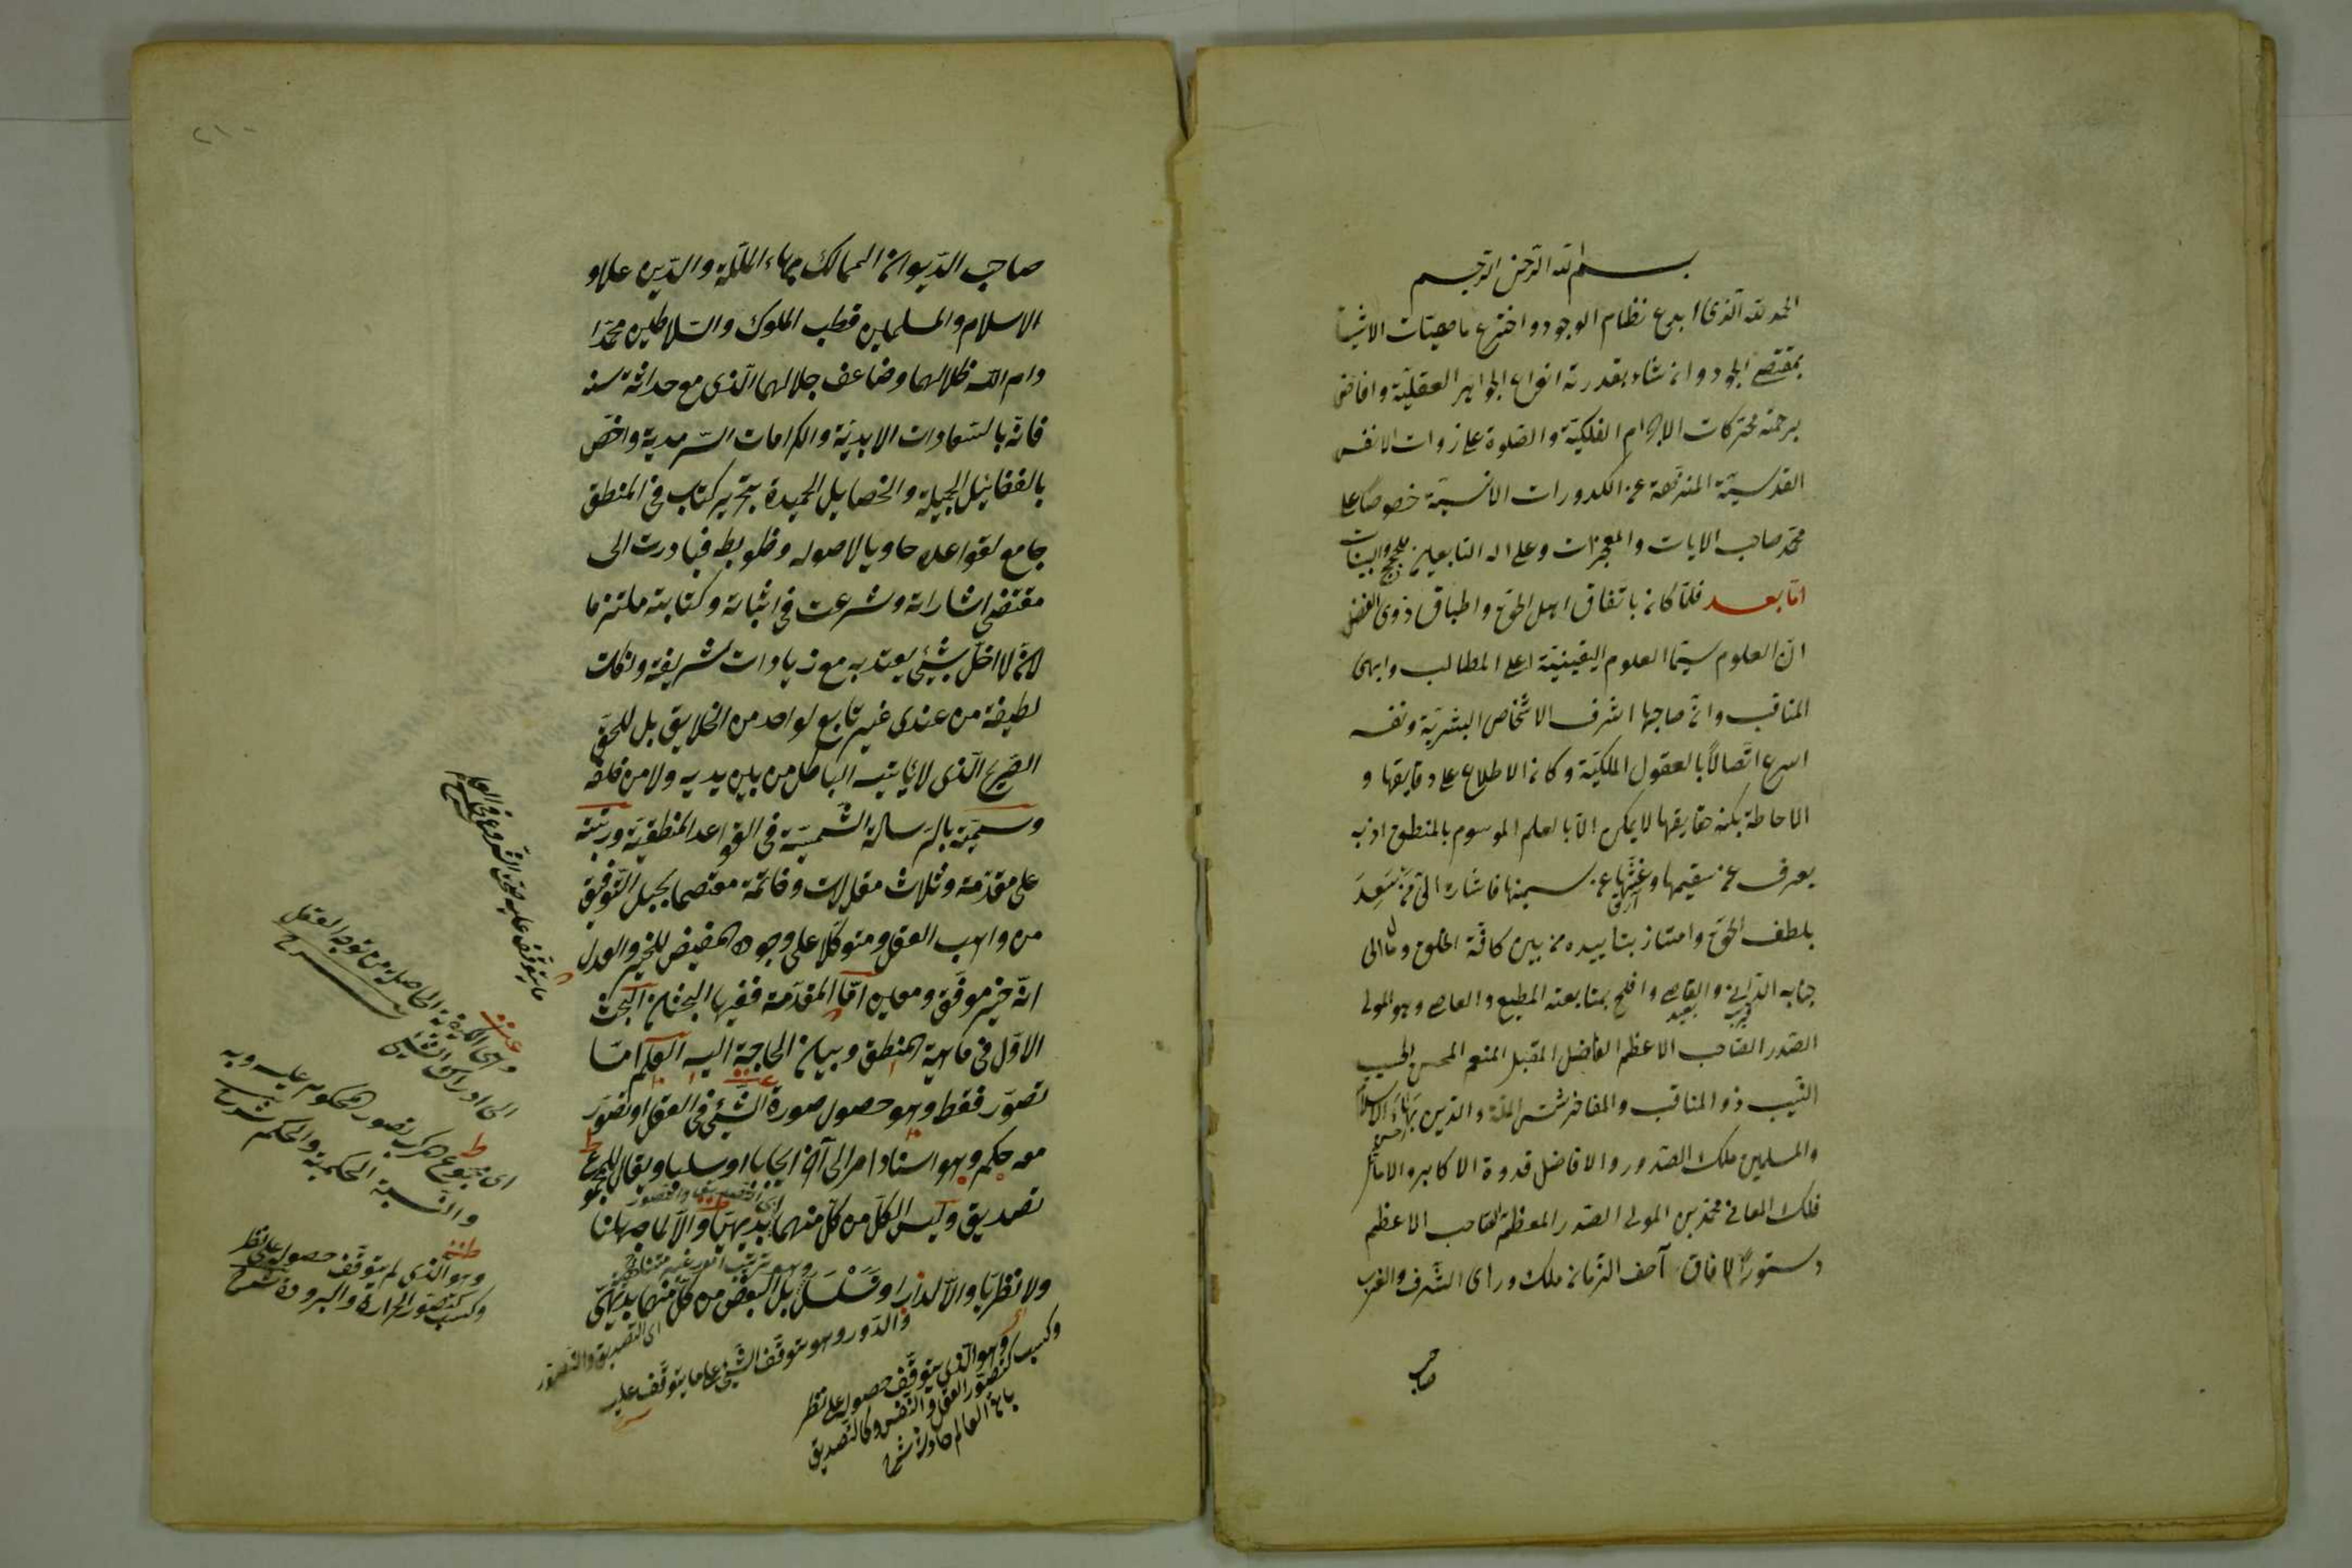 بسم الله الرحمن الرحيم
الحمد لله الذى ابدع نظام الوجود واخترع ماهيات الاشياء
بمقتضى الجود وانشاء بقدرته انواع الجواهر العقلية وافاض
برحمته محركات الاجرام الفلكية والصلوة على ذوات الانفس
القدسية المنزهة عن الكدورات الانسية خصوصا على
محمد صاحب الايات والمعجزات وعلى اله التابعين للحجج والبينات
اما بعد فلما كان باتفاق اهل الحق واطباق ذوى الفضل
ان العلوم سيما العلوم اليقينية اعلى المطالب وابهى
المناقب وان صاحبها اشرف الاشخاص البشرية ونفسه
اسرع اتصالا بالعقول الملكية وكان الاطلاع على دقايقها و
الاحاطة بكنه حقايقها لا يمكن الا بالعلم الموسوم بالمنطق اذ به
يعرف عن سقيمها وغثها عن سمينها فاشار الى من سعد
بلطف الحق وامتاز بتاييده من بين كافة الخلق ومال الى
جنابه الدانى والقاصى وافلح بمتابعته المطيع والعاصى وهو المولى
قريب بعيد
الصدر الصاحب الاعظم الفاضل المقبل المنعم المحسن الحسيب
النسيب ذو المناقب والمفاخر شمس الملة والدين بهاء الاسلام
والمسلمين ملك الصدور والافاضل قدوة الاكابر والاماثل
فلك المعالى محمد بن المولى الصدر المعظم الصاحب الاعظم
دستور الافاق آصف الزمان ملك وراى الشرف والغرب
صاحب
٢١٠
صاحب الديوان الممالك بهاء الملة والدين علاو
الاسلام والمسلمين قطب الملوك والسلاطين محمد ا
دام الله ظلالهما وضاعف جلالهما الذى مع حداثة سنه
فاته بالسعادات الابدية والكرامات السرمدية واخص
بالفضايل الجميلة والخصايل الحميدة بتحرير كتاب فى المنطق
جامع لقواعده حاويا لاصوله وظوبطه فبادرت الى
مقتضى اشاراته وشرعت فى اثباته وكتابته ملتزما
لان لا اخل بشيئ يعتد به مع زيادات شريفة ونكات
لطيفة من عندى غير تابع لواحد من الخلايق بل للحق
الصريح الذى لا ياتيه الباطل من بين يديه ولا من خلفه
وسميته بالرسالة الشمسية فى القواعد المنطقية ورتبته
على مقدمة وثلاث مقالات وخاتمة معتصما بحبل التوفيق
من واهب العقل ومتوكلا على وجوده المفيض للخير والعدل
انه خير موفق ومعين اما المقدمة ففيها البحثان البحث
الاول فى ماهية المنطق وبيان الحاجة اليه العلم اما
تصور فقط وهو حصول صورة الشيئ فى العقل او تصور
معه حكم وهو اسناد امر الى آخر ايجابا او سلبا ويقال للمجموع
تصديق وليس الكل من كل منهما بديهيا والا لما جهلنا
اى التصديق والتصور
ولا نظريا والا لدار او تسلسل بل البعض من كل منهما بديهى
وهو ترتب امور غير متناهية
والدور وهو توقف الشيئ على ما يتوقف عليه
اى التصديق والتصور
وهو الذى يتوقف حصوله على نظر
وكسب كتصور العقل والنفس وكالتصديق
بان العالم حادث شرح
ما يتوقف عليه صحة الشروع فى العلم شرح
وهى الكيفية الحاصلة من توجه العقل
الى ادراك الشيئ شرح
اى مجموع مركب تصور المحكوم عليه وبه
والنسبة الحكمية والحكم شرح
وهو الذى لم يتوقف حصوله على نظر
وكسب كتصور الحرارة والبرودة شرح